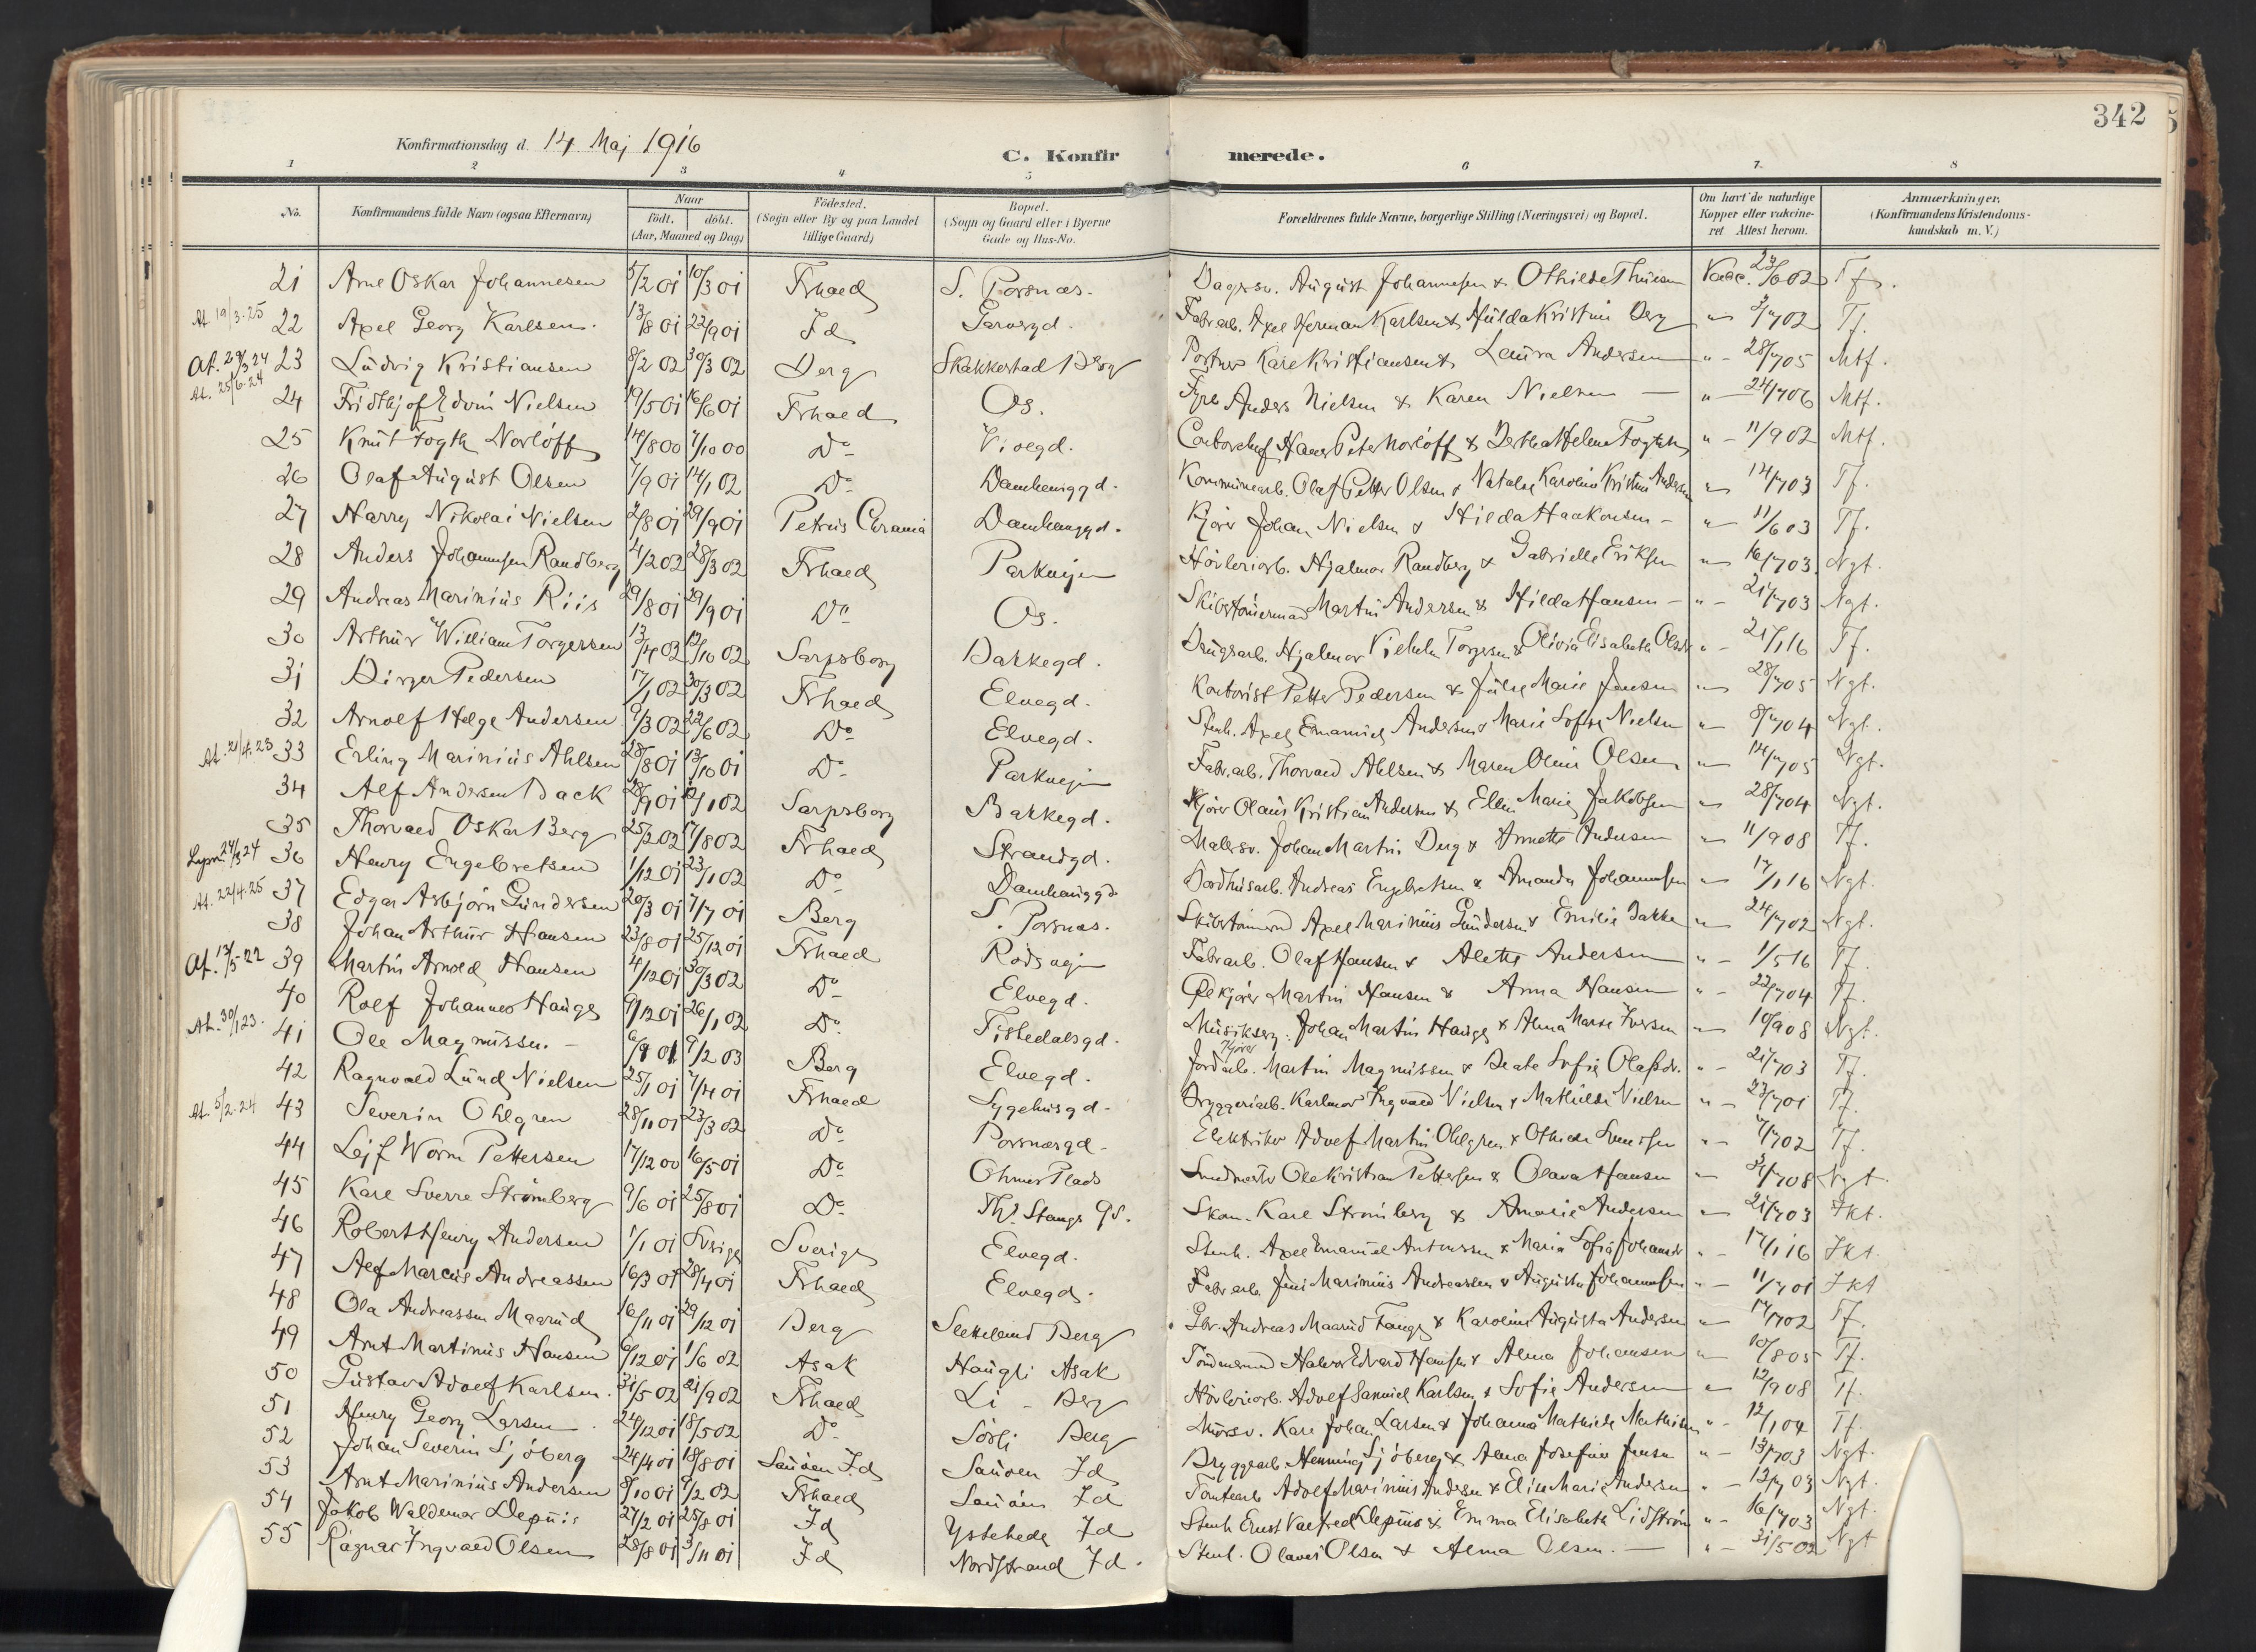 342
Konfirmationsdag d. 14 Maj 1916
C. Konfir merede.
1 2 3 4 5 6 7. 8
No. Konfirmandens fulde Navn (ogsaa Efternavn) Naar født. døbt. (Aar, Maaned og Dag) Fødested. (Sogn eller By og paa Landet tillige Gaard) Bopæl. (Sogn og Gaard eller i Byerne Gade og Hus-No. Forældrenes fulde Navne, borgerlige Stilling (Næringsvei) og Bopæl. Om havt de naturlige Kopper eller vakcineret Attest herom. Anmærkninger. (Konfirmandens Kristendomskundskab m. V.)
21 Arne Oskar Johannesen 5/2 01 10/3 01 Frhald S. Posnæs. Dagsv. August Johannesen & Othilde Thuesen Vacc. 23/6 02 Tf.
At 19/3-25 22 Axel Georg Karlsen. 13/8 01 22/9 01 Id Garvergd. Fabr.arb. Axel Herman Karlsen & Hulda Kristine Berg " 3/7 02 Tf.
At. 29/3 24 23 Ludvig Kristiansen 8/2 02 30/3 02 Berg Skakkestad Berg Portner Karl Kristiansen & Laura Andersen " - 28/7 05 Mtf.
At. 25/6-24 24 Fridthjof Edvin Nielsen 19/5 01 16/6 01 Frhald Os. Fyrb. Anders Nielsen & Karen Nielsen " - 24/7 06 Mtf.
25 Knut Fogth Norløff 14/8 00 7/10 00 Do Violgd. Contorchef Hans Peter Norløff & Bertha Helene Fogth " - 11/9 02 Mtf.
26 Olaf August Olsen 7/9 01 14/1 02 Do Damhauggd. Kommunearb. Olaf Petter Olsen & Natalie Karoline Kristine Andersen " 14/7 03 Tf.
27 Harry Nikolai Nielsen 2/8 01 29/9 01 Petrus Chrania Damhauggd. Kjører Johan Nielsen & Hilda Haakonsen - " 11/6 03 Tf.
28 Anders Johannesen Randberg 4/2 02 28/3 02 Frhald Parkvejen Høvleriarb. Hjalmar Randberg & Gabrielle Eriksen " 16/7 03. Ngt.
29 Andreas Marinius Riis 29/8 01 29/9 01 Do Os. Skibstømermand Martin Andersen & Hilda Hansen - " - 21/7 03 Ngt.
30 Arthur William Torgersen 13/4 02 12/10 02 Sarpsborg Bakkegd. Brugsarb. Hjalmar Vilhelm Torgersen & Olivia Elisabeth Olsen " - 21/1 16 Tf.
31 Birger Pedersen 17/1 02 30/3 02 Frhald Elvegd. Kontorist Petter Pedersen & Julie Marie Jensen " 28/7 05 Ngt.
32 Arnolf Helge Andersen 9/3 02 22/6 02 Do Elvegd. Stenh. Axel Emanuel Andersen & Marie Sofie Nielsen " 8/7 04 Ngt.
At. 21/4.23 33 Erling Marinius Ahlsen 28/8 01 13/10 01 Do Parkvejen Fabr.arb. Thorvald Ahlsen & Maren Oline Olsen " 14/7 05 Ngt.
34 Alf Andersen Back 28/9 01 12/1 02 Sarpsborg Bakkegd. Kjører Olaus Kristian Andersen & Ellen Marie Jakobsen " 28/7 04 Ngt.
35 Thorvald Oskar Berg 25/2 02 17/8 02 Frhald Strandgd. Malersv. Johan Martin Berg & Annette Andersen " 11/9 08 Tf.
24/3 24 36 Henry Engebretsen 1/12 01 23/1 02 Do Damhauggd. Andreas Engebretsen & Amanda Johannesen " 17/1 16 Ngt.
At. 22/4-25 37 Edgar Asbjørn Gundersen 20/3 01 7/7 01 Berg S. Posnæs. Skibstømmermd Axel Marinius Gundersen & Emilie Bakke " 24/7 02 Ngt.
38 Johan Arthur Hansen 23/8 01 25/12 01 Frhald Rødsvejen Fabr.arb. Olaf Hansen & Alette Andersen " - 1/5 16 Tf.
At. 13/5-22 39 Martin Arnold Hansen 4/12 01 30/3 02 Do Elvegd. Ølkjører Martin Hansen & Anna Hansen " - 22/7 04 Tf.
40 Rolf Johannes Hauge 9/12 01 26/1 02 Do Tistedalsgd. Musikserg. Johan Martin Hauge & Alma Marie Iversen " 10/9 08 Ngt.
At. 30/1 23. 41 Ole Magnussen. - 6/9 01 9/2 03 Berg Elvegd. Kjører Jordarb. Martin Magnussen & Beate Sofie Olafsdr. " - 21/7 03 Tf.
42 Ragnvald Lund Nielsen 25/1 01 7/4 01 Frhald Sygehusgd. Bryggeriarb. Karlmar Ingvald Nielsen & Mathilde Nielsen " - 23/7 01 Tf.
At. 5/2-24 43 Severin Ohlgren 28/11 01 23/3 02 Do Posnæsgd. Elektriker Adolf Martin Ohlgren & Othilde Svensen " - 7/7 02 Tf.
44 Lejf Worm Pettersen 17/12 00 16/5 01 Do Ohmes Plads Ole Kristian Pettersen & Olava Hansen " 31/7 08 Ngt.
45 Karl Sverre Strømberg 9/6 01 25/8 01 Do Th. Stangs gd. Skom. Karl Strømberg & Amalie Andersen " 21/7 03 Ikt.
46 Robert Henry Andersen 1/1 01 Sverige Sverige Elvegd. Stenh. Axel Emanuel Antonsen & Maria Sofia Johansdr " - 17/1 16 Ikt.
47 Alf Marcus Andreassen 16/3 01 28/4 01 Frhald Elvegd. Fabr.arb. Jens Marinius Andreassen & Augusta Johannesen " - 11/7 01 Ikt
48 Ola Andreassen Maarud 16/11 01 29/12 01 Berg Berg Gbr. Andreas Maarud Fange & Karoline Augusta Andersen " 17/7 02 Tf.
49 Arnt Martinius Hansen 6/12 01 1/6 02 Asak Haugli Asak Tømmermd Halvor Edvard Hansen & Alma Johansen " 10/8 05 Tf.
50 Gustav Adolf Karlsen. 31/5 02 21/9 02 Frhald Li - Berg Høvleriarb. Adolf Samuel Karlsen & Sofie Andersen " 12/9 08 Tf.
51 Henry Georg Larsen 24/12 01 18/5 02 Do Sørli Berg Mursv. Karl Johan Larsen & Johanna Mathilde Mathisen " - 12/1 04 Tf.
52 Johan Severin Sjöberg 24/4 01 18/8 01 Sauøen Id Sauøen Id Bryggearb Henning Sjöberg & Alma Josefine Jensen " - 13/7 03 Ngt.
53 Arnt Marinius Andersen 8/10 01 9/2 02 Frhald Sauøen Id Tomtearb Adolf Marinius Andersen & Elise Marie Andersen " - 13/7 03 Ngt.
54 Jakob Waldemar Depuis 27/2 01 25/8 01 Id Ystehede Id Stenh Ernst Valfred Depuis & Emma Elisabeth Lidström " - 16/7 03 Ngt.
55 Ragnar Ingvald Olsen 28/8 01 3/11 01 Id Nordstrand Id. Stenh. Olaves Olsen & Alma Olsen. - " - 31/5 02 Ngt